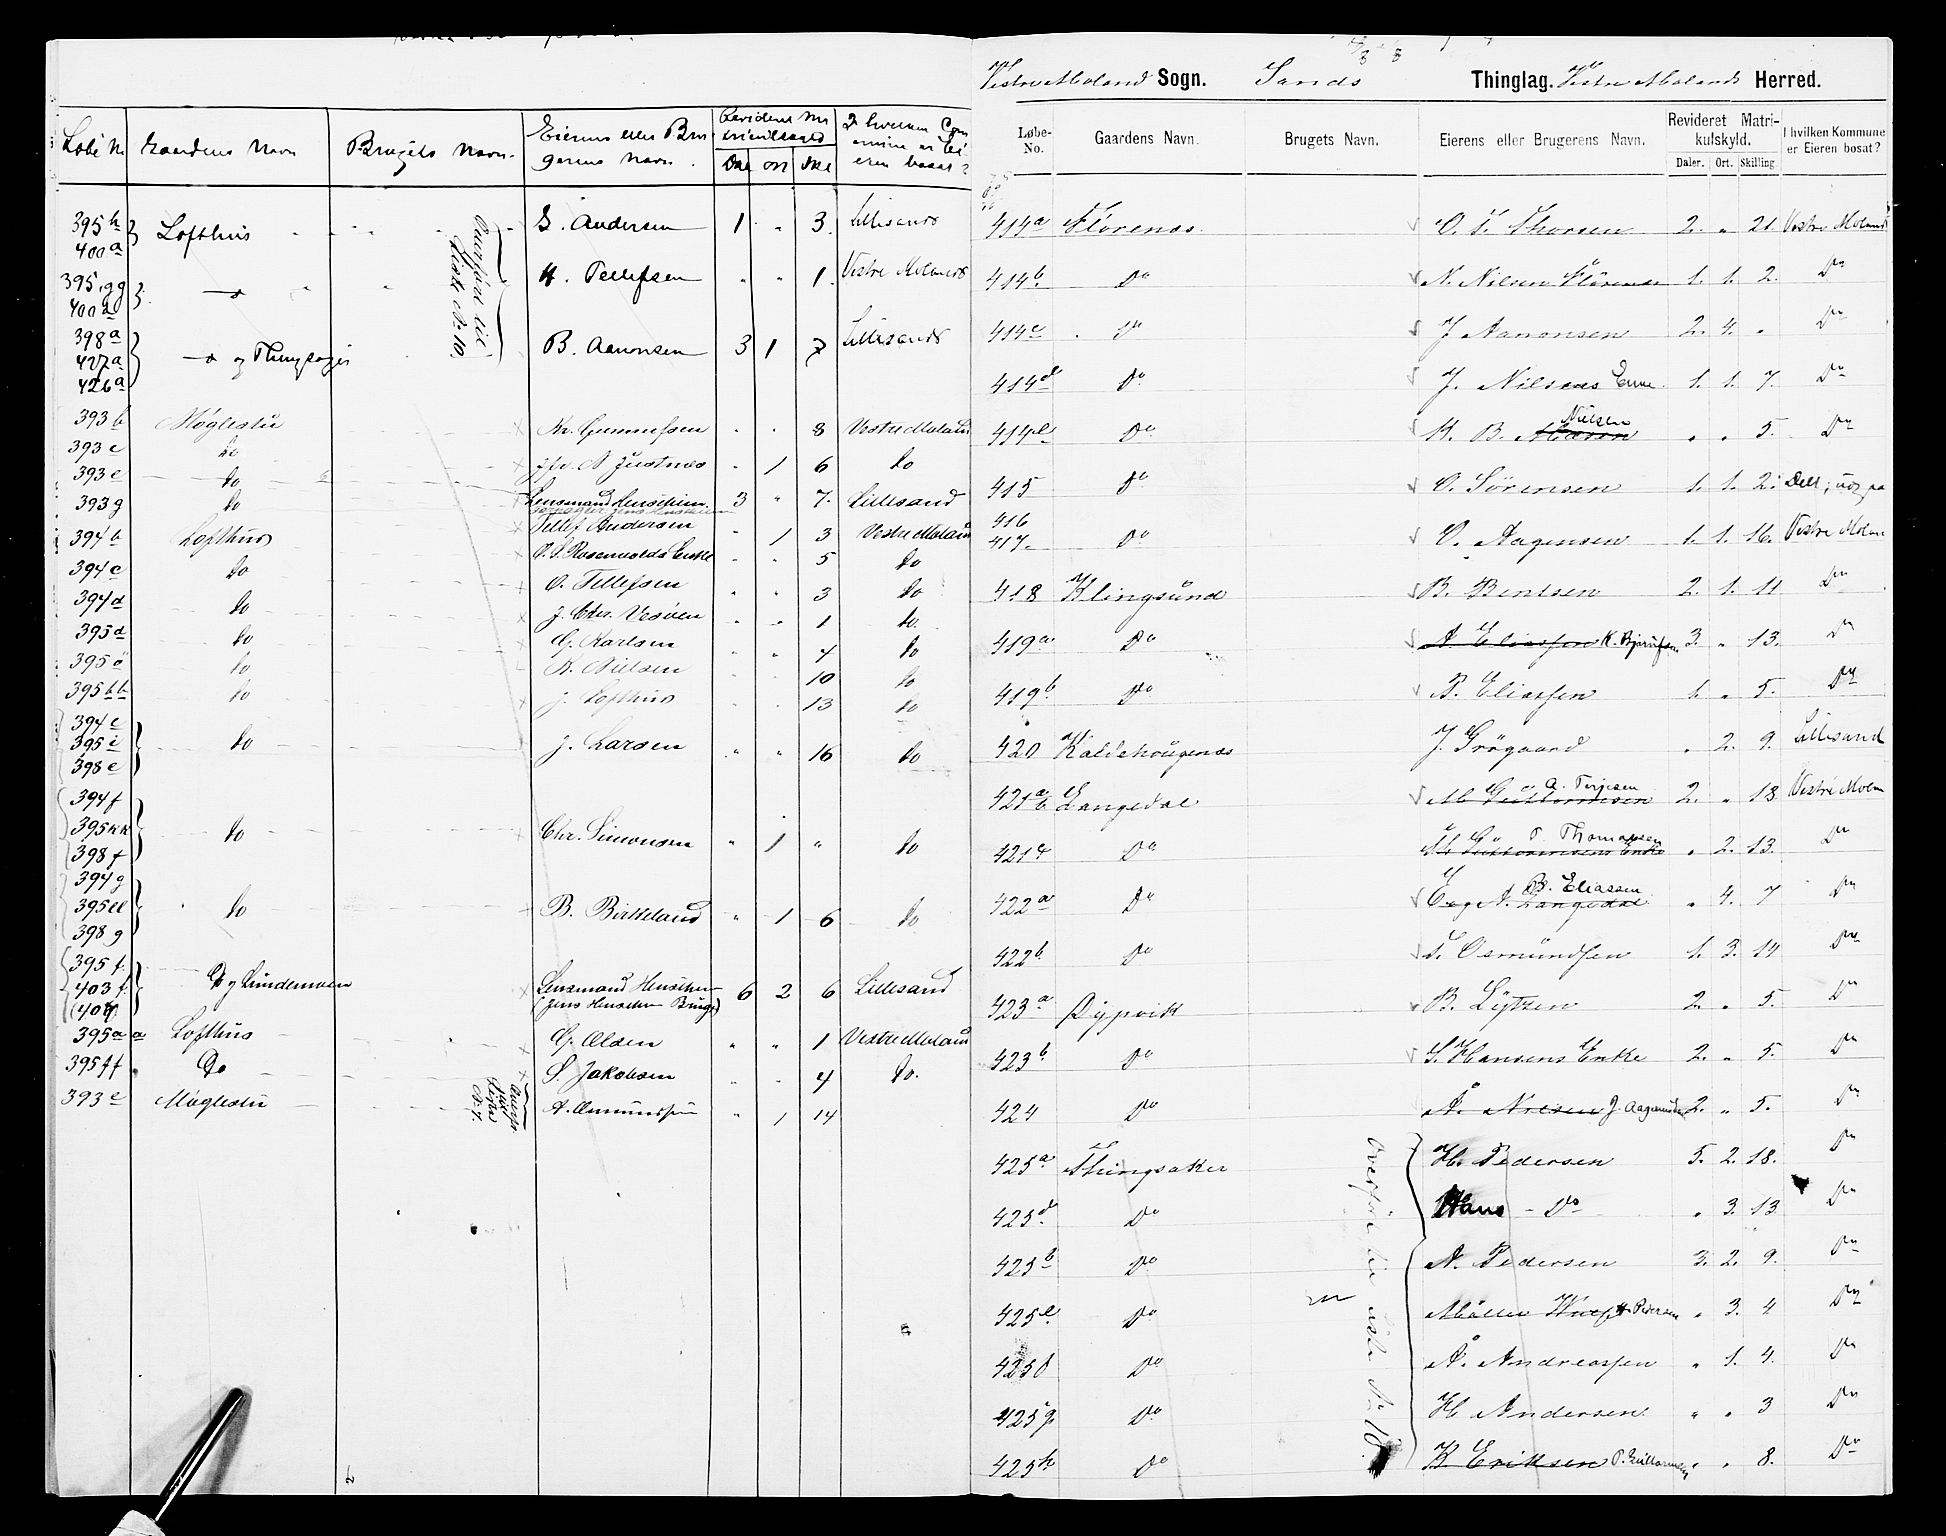 Løbe No Gaardens Navn Brugets Navn. Eierens eller Brugerens Navn. Revideret Matrikulskyld Dal Ort Skil I hvilken Commune er Eieren bosat?
395h 400a } Lofthus G. Andersen 1 " 3. Lillesand
395gg 400a } — H. Tellefsen " " 1. Vestre Moland
398a 427a 426a } — og Thingsager B. Aanonsen 3 1 7 Lillesand
Overført til Liste No 10
393b Møglestu Kr. Gunnufsen " " 8 Vestre Moland
393c do N Justnes " 1 6 do
393e do
393g do Lensmand Henschien 3 " 7. Lillesand
394b Lofthus Tellef Andersen " 1 3 Vestre Moland
394c do Rosenvolds Enke " " 5 do
394d do O. Tellefsen " " 3 do
395d do J. Chr. Vesøen " " 1 do.
395ö do G. Karlsen " " 4 do
395bb do N. Nielsen " " 10 do
J. Lofthus " " 13 do
394e 395i 398e } do J. Larsen " " 16 do
394f 395kk 398f } do Chr. Simonsen " 1 " do
394g 395ll 398g } do B. Birkeland " 1 6 do
395f 403f 404 } Do og Lundemoen Lensmand Henschien (Jens Henschien Brug) 6 2 6 Lillesand
395aa Lofthus G. Olsen " " 1 Vestre Moland
395ff Do S. Jakobsen " " 4 do.
393e Møglestu A. Omundsen " 1 14
Vestre Moland Sogn. Sands Thinglag. Vestre Molands Herred.
Løbe-No. Gaardens Navn. Brugets Navn. Eierens eller Brugerens Navn. Revideret Matrikulskyld. Daler. Ort. Skilling I hvilken Kommune er Eieren bosat?
414a Flørenes. O. T. Thorsen 2. " 21. Vestre Moland
414b Do N. Nilsen Flörenes 1. 1. 2. Do
414c Do J Aanonsen 2. 4. " Do
414d Do J. Nilsens Enke. 1. 1. 7. Do
414e Do K. B. Nielsen " " 5. Do
415 Do O. Sörensen 1. 1. 2.
416 417. Do O. Aagensen 1. 1. 16. Vestre Molan
418 Klingsund B. Bentsen 2. 1. 11 Do
419a Do A Eliassen K. Bjørnfsen 3. " 13. Do
419b Do P. Eliassen 1. " 5. Do
420 Kaldehougenes J. Grögaard " 2. 9. Lillesand
421a b Langedal M Guttormsen A. Terjesen 2. " 18 Vestre Molan
421c Do M Guttormsens Enke T. Thomassen " 2. 13. Do
422a Do E og N. Langedal B. Eliassen " 4. 7 Do
422b Do T. Osmundsen 1. 3. 14 Do
423a Dypvik B. Lytzen 2. " 5. Do
423b Do S. Hansens Enke 2. " 5. Do
424 Do A. Nilsen J. Aagensen 2. " 5. Do
425a Thingsaker H. Pedersen 5. 2. 18. Do
425d Do Hans — Do " 3. 13 Do
425b Do N. Pedersen 3. 2. 9. Do
425e Do H Pedersen " 3. 4 Do
425f Do A. Andreassen " 1. 4. Do
425g Do H Andersen " " 3 Do
425h Do K Eriksen P. Guttormsen " " 8. Do
Overført til Liste No 10.